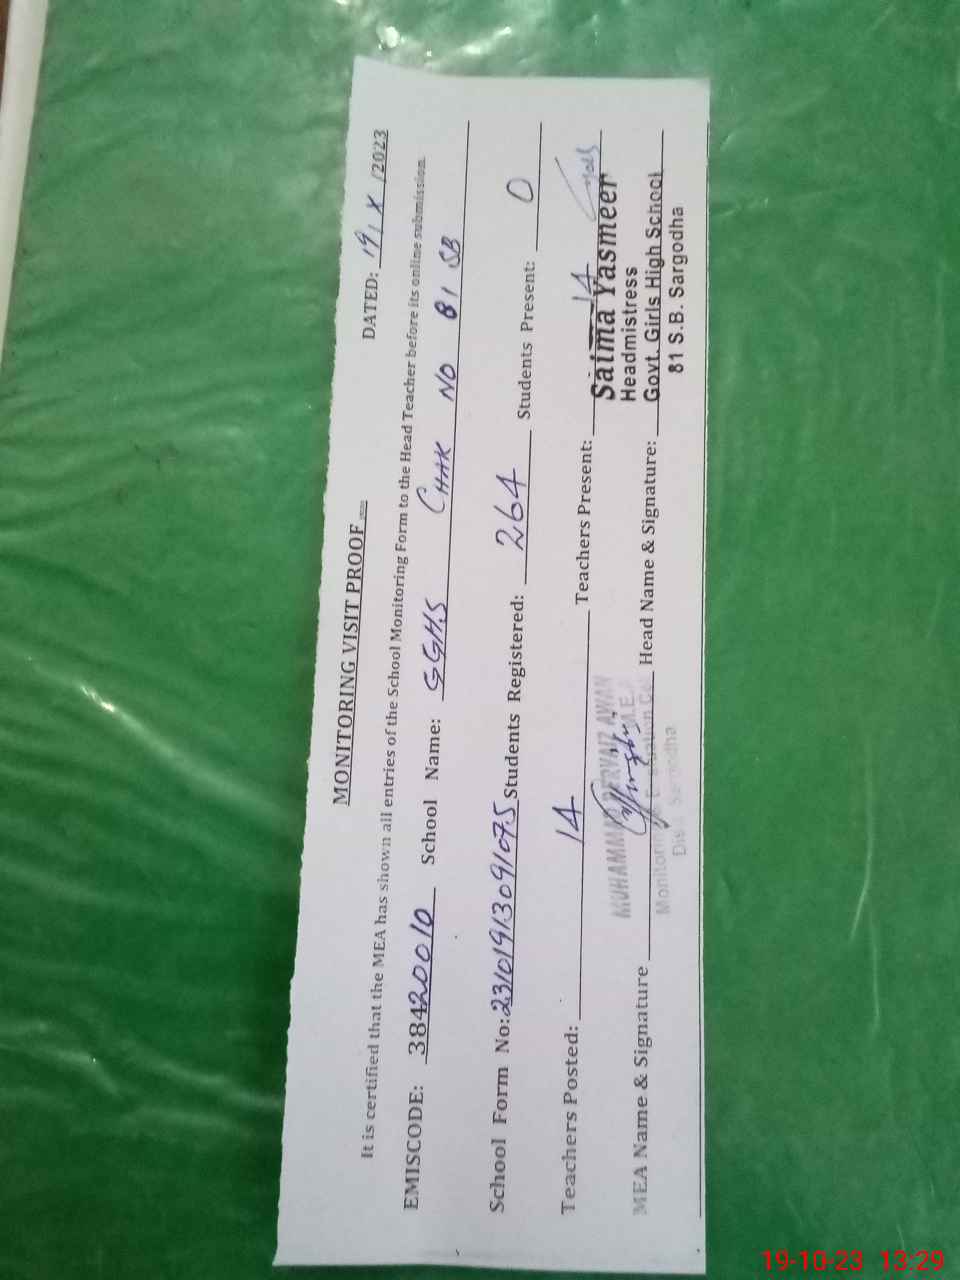 MONITORING VISIT PROOF
DATED: 19/X/2023
It is certified that the MEA has shown all entries of the School Monitoring Form to the Head Teacher before its online submission.
EMISCODE: 38420010 School Name: GGHS CHAK NO 81 SB
School Form No: 23101913091075 Students Registered: 264 Students Present: 0
Teachers Posted: 14 Teachers Present: 14
MUHAMMAD PERVAIZ AWAN
Saima Yasmeen
Headmistress
MEA Name & Signature Head Name & Signature: Govt. Girls High School
81 S.B. Sargodha
19-10-23 13:29